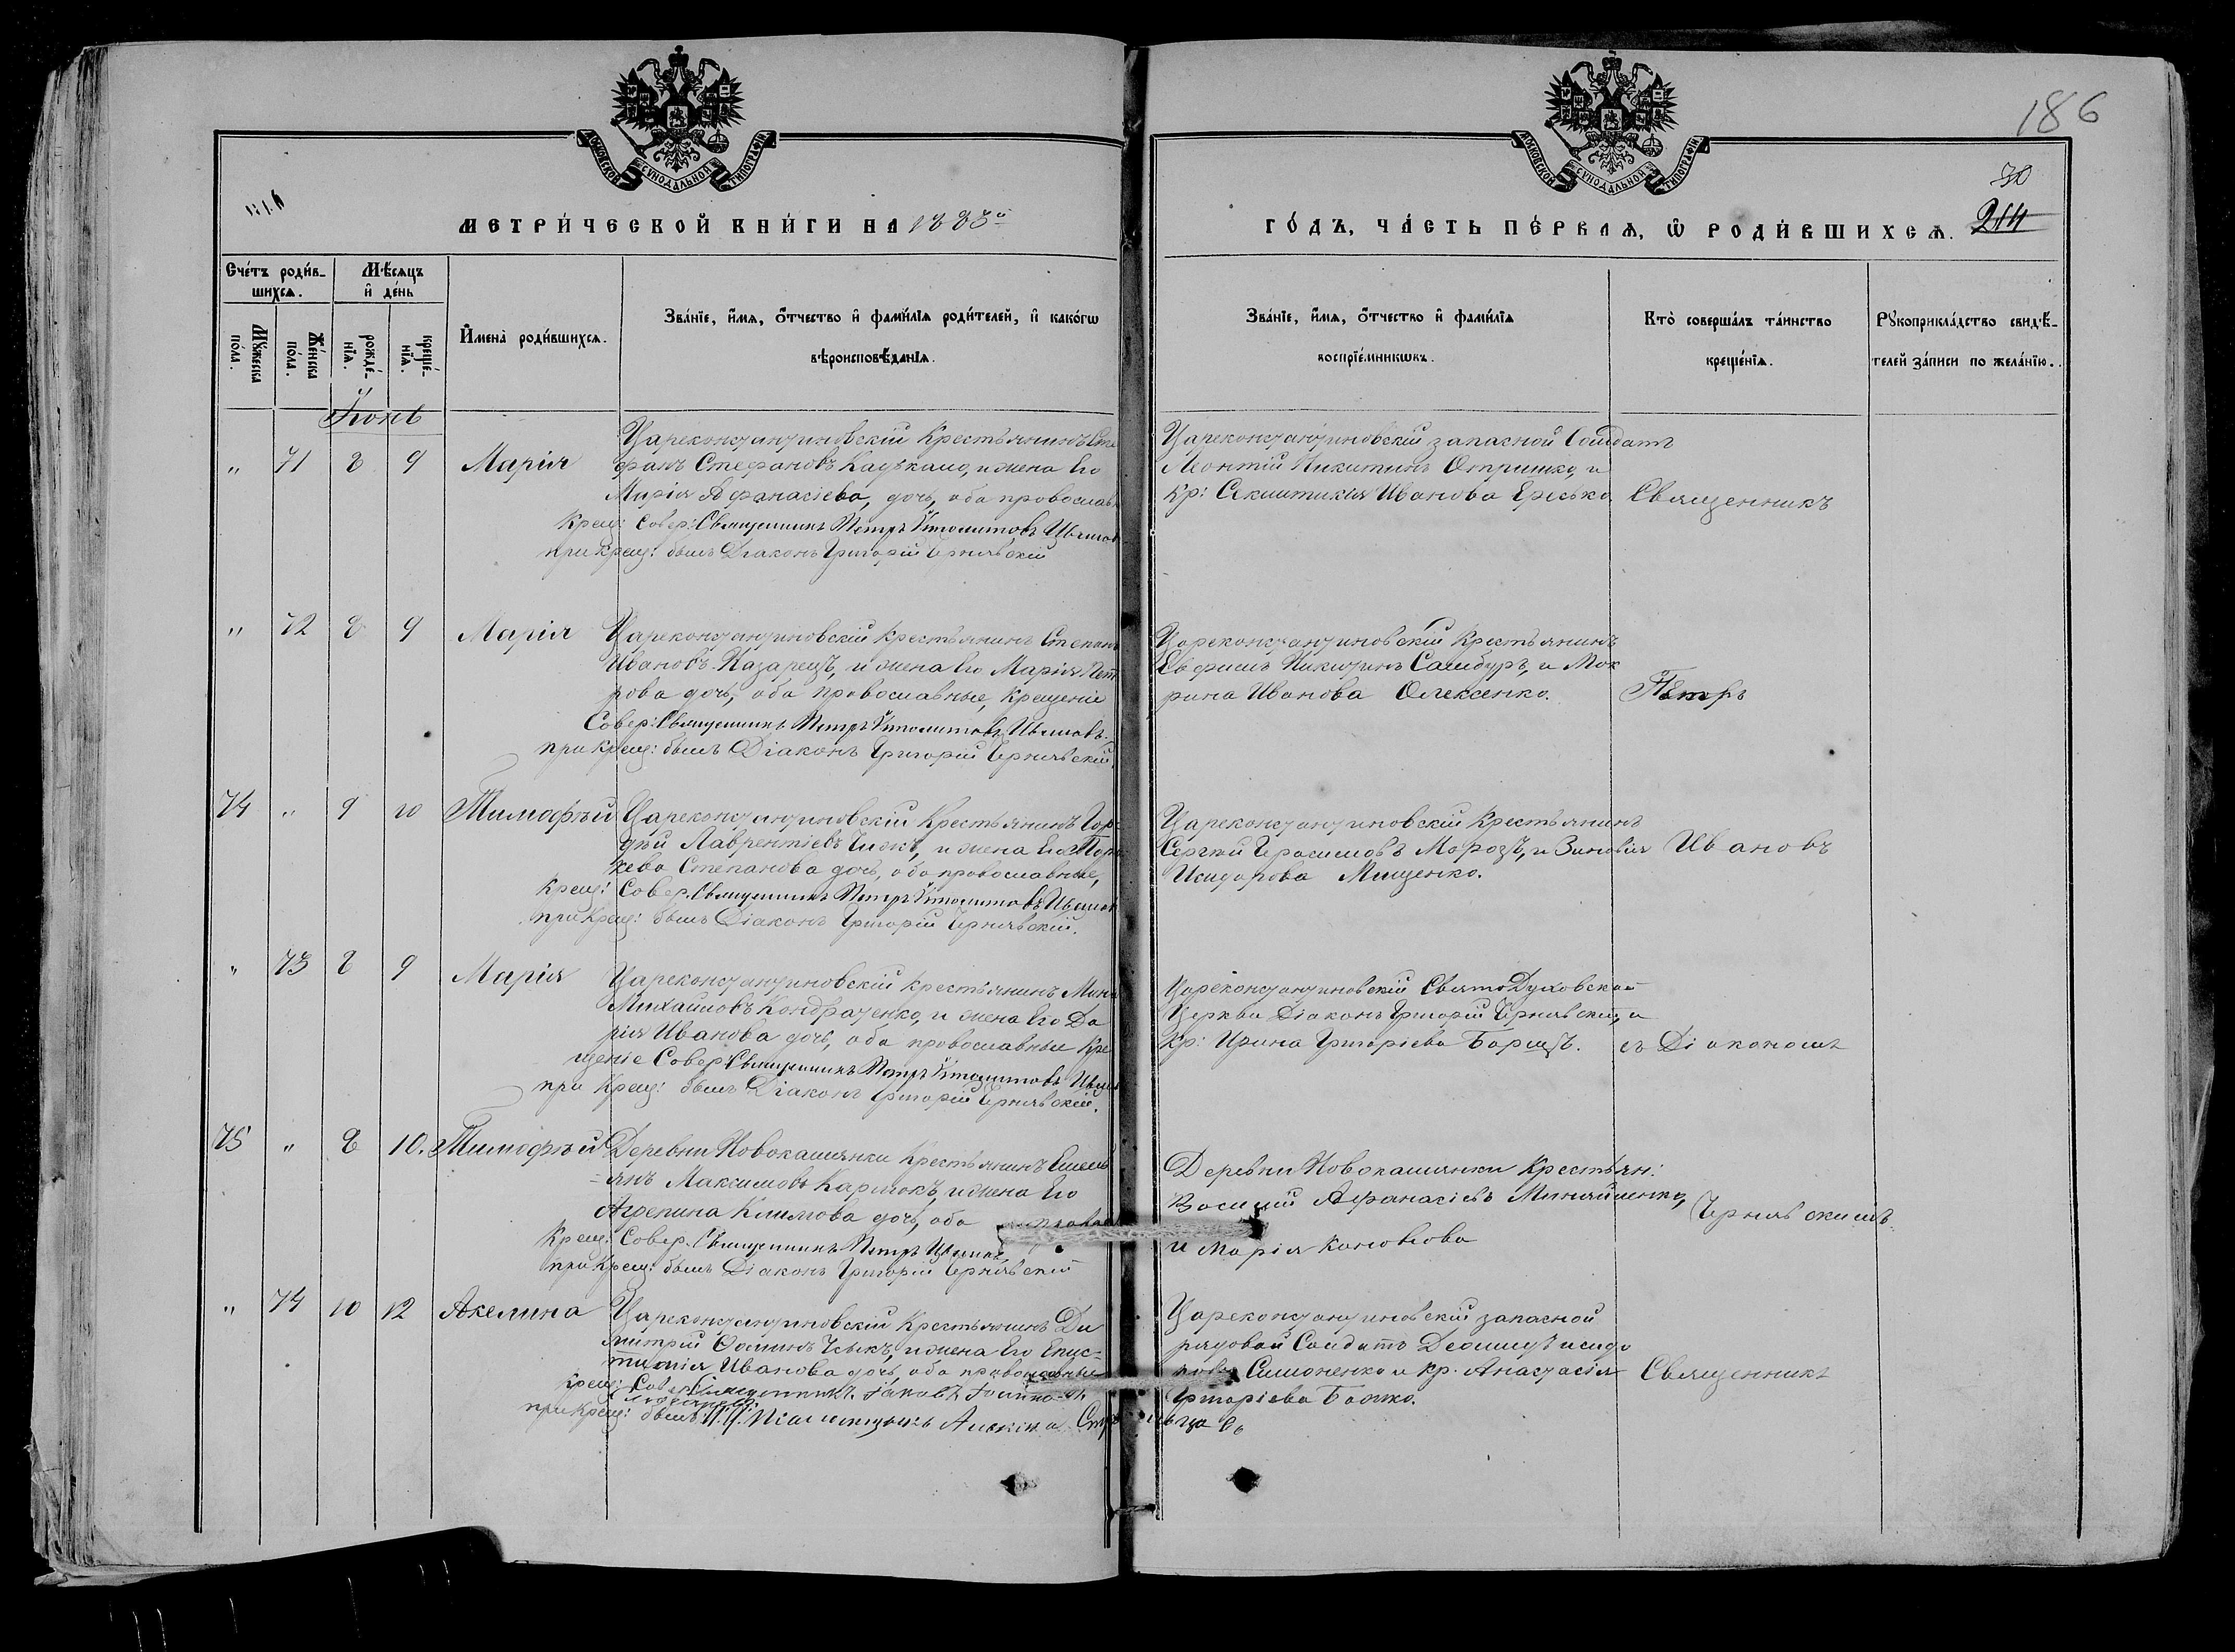 186
30
214
МОСКОВСКОЙ СѴНОДАЛЬНОЙ ТИПОГРАФІИ
МОСКОВСКОЙ СѴНОДАЛЬНОЙ ТИПОГРАФІИ
МЕТРИ́ЧЕСКОЙ КНИ́ГИ НА 1883й
ГО́ДЪ, ЧА́СТЬ ПЕ́РВАЯ, Ѡ РОДИ́ВШИХСЯ.
Сче́тъ роди́в-
шихся.
Мѣ́сяцъ
и҆ де́нь
Мꙋ́жеска
по́ла.
Же́нска
по́ла.
рожде́-
нїя.
креще́-
нїя.
И҆мена̀ роди́вшихся.
Зва́нїе, и҆́мя, ѻ҆́тчество и҆ фами́лїя роди́телей, и҆ како́гѡ
вѣроисповѣ́данїя.
Зва́нїе, и҆́мя, ѻ҆́тчество и҆ фами́лїя
воспрїе́мникѡвъ.
Кто̀ соверша́лъ та́инство
креще́нїя.
Рꙋкоприкла́дство свидѣ́-
телей за́писи по жела́нїю.
Іюнь
" 71 8 9 Марія
Цареконстантиновскій Крестьянинъ Сте
фанъ Стефановъ и жена Его
Марія Афанасіева дочь, оба православ
Крещ: Совер: Священникъ Петръ Ипполитовъ Ивано
при Крещ: былъ Діаконъ Григорій Чернявскій
Цареконстантиновскій запасной Солдатъ
Леонтій Никитинъ Отришко, и
Кр: Иванова Ересько
Священникъ
" 72 8 9 Марія
Цареконстантиновскій Крестьянинъ Степан
Ивановъ Назарецъ, и жена Его Марія Пет
рова дочь, оба православные, Крещеніе
Совер: Священникъ Петръ Ипполитовъ Ивановъ
при Крещ: былъ Діаконъ Григорій Чернявскій.
Цареконстантиновскій Крестьянинъ
Евфимъ Никитинъ Самбуръ, и Мок
рина Иванова Олексенко.
Петръ
74 " 9 10 Тимофѣй
Цареконстантиновскій Крестьянинъ Гор
дѣй Лаврентіевъ Чижъ, и жена Его Пара
кева Степанова дочь, оба православные,
Крещ: Совер. Священникъ Петръ Ипполитовъ Иванов
при Крещ: былъ Діаконъ Григорій Чернявскій.
Цареконстантиновскій Крестьянинъ
Сергѣй Герасимовъ Морозъ, и Зиновія
Исидорова Мищенко.
Ивановъ
" 73 8 9 Марія
Цареконстантиновскій Крестьянинъ Мина
Михайловъ Кондратенко, и жена Его Да
рія Иванова дочь, оба православные Кре
щеніе Совер. Священникъ Петръ Ипполитовъ Ивано
при Крещ: былъ Діаконъ Григорій Чернявскій.
Цареконстантиновскій СвятоДуховской
Церкви Діаконъ Григорій Чернявскій, и
Кр: Ирина Григоріева Борщъ.
съ Діакономъ
75 " 8 10. Тимофѣй
Деревни Новокашянки Крестьянинъ Емель
=янъ Максимовъ и жена Его
Агрепина Климова дочь, оба правос
Крещ: Совер. Священникъ Петръ Ивановъ
при Крещ: былъ Діаконъ Григорій Чернявскій
Деревни Новокашянки Крестьян:
Василій Афанасіевъ Миняйленко,
и Марія Коновлова
Чернявскимъ
" 74 10 12 Акелина
Цареконстантиновскій Крестьянинъ Ди
митрій Ѳоминъ Чвыкъ, и жена Его Епис-
тимія Иванова дочь, оба православные
Крещ: Совер. Священникъ Іаковъ
при Крещ: былъ Псаломщикъ Алексѣй
Цареконстантиновскій запасной
рядовой Солдатъ Деомидъ исидо
ровъ Симоненко и Кр. Анастасія
Григоріева Божко.
Священникъ